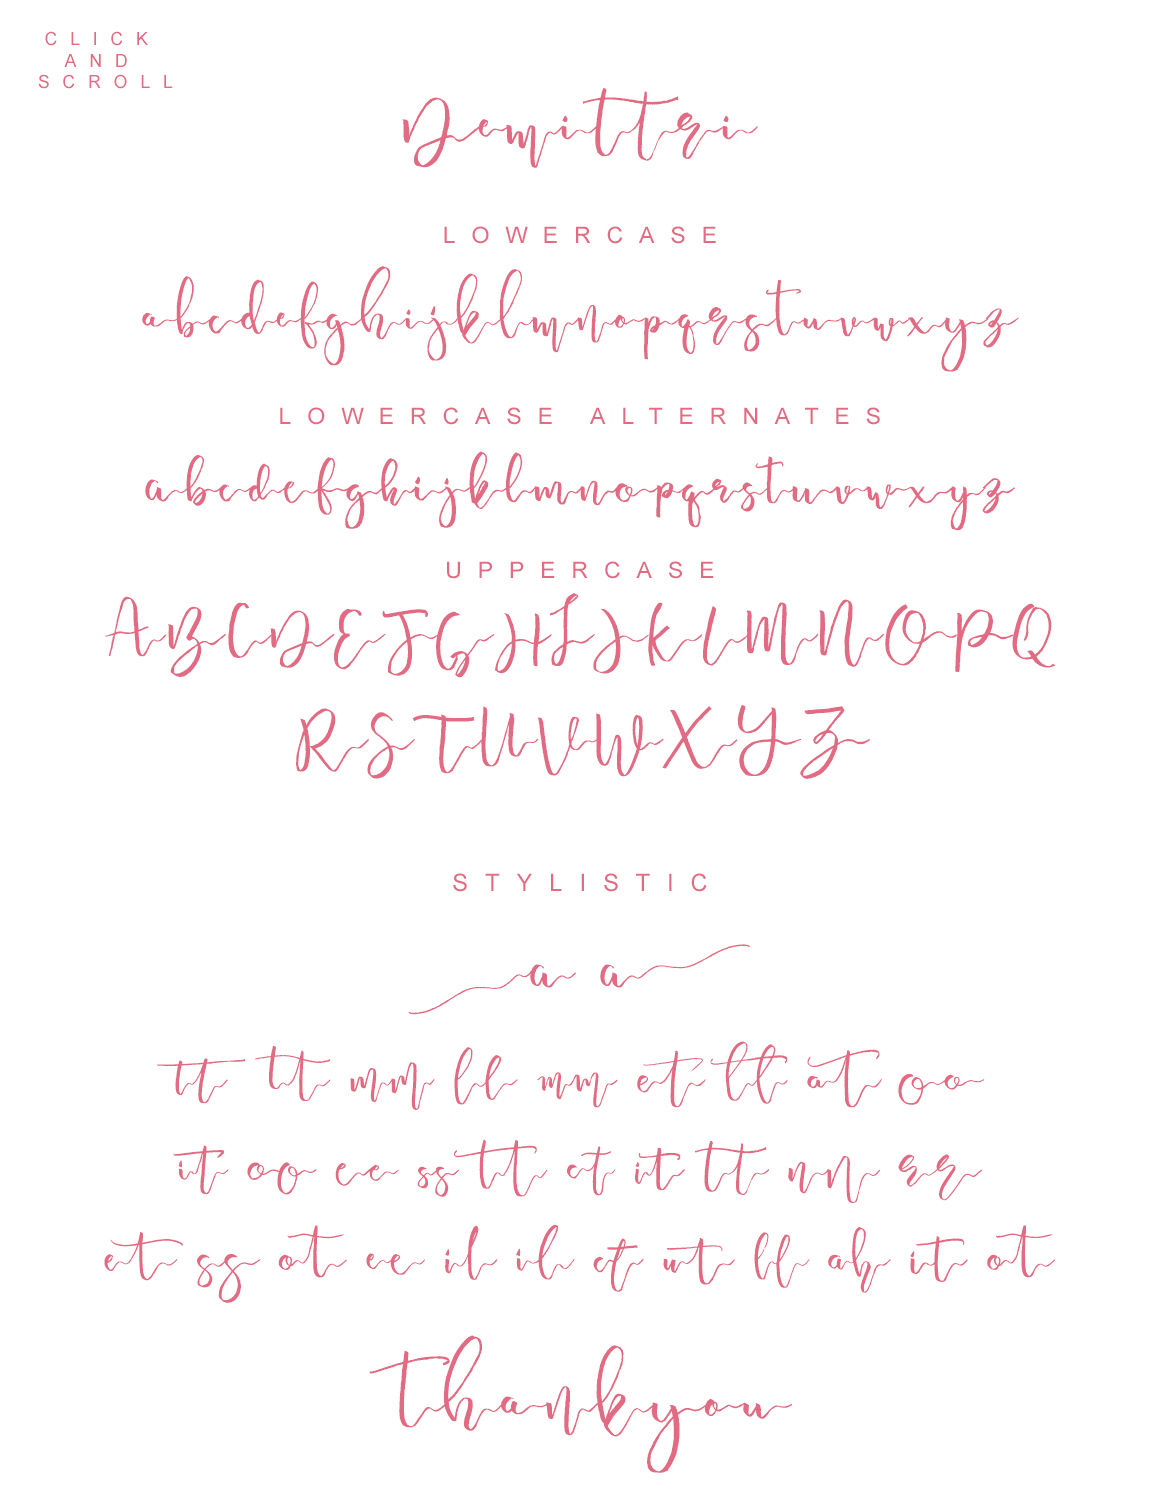 CLICK
AND
SCROLL
Demittri
LOWERCASE
abcdefghijklmnopqrstuvwxyz
LOWERCASE ALTERNATES
abcdefghijklmnopqrstuvwxyz
UPPERCASE
ABCDEFGHIJKLMNOPQ
RSTUVWXYZ
STYLISTIC
a a
tt tt mm ll mm et tt at oo
it oo ee ss tt ct it tt nn rr
et ss ot ee il il ct ut ll ah it ot
thankyou